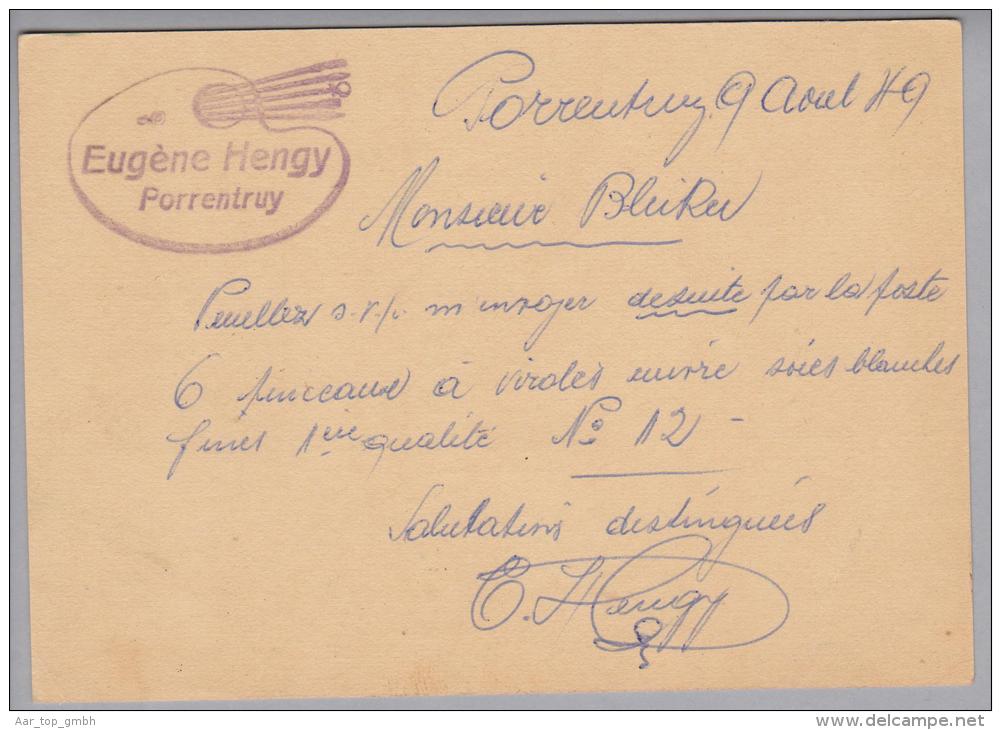 Eugène Hengy
Porrentruy
Porrentruy, 9 Aout 49
Monsieur Bleiker
Veuillez s.v.p. m'envoyer desuite par la poste
6 pinceaux à viroles cuivre soies blanches
fines 1ère qualité No 12 -
Salutations distinguées
E. Hengy
Aar_top_gmbh
www.delcampe.net